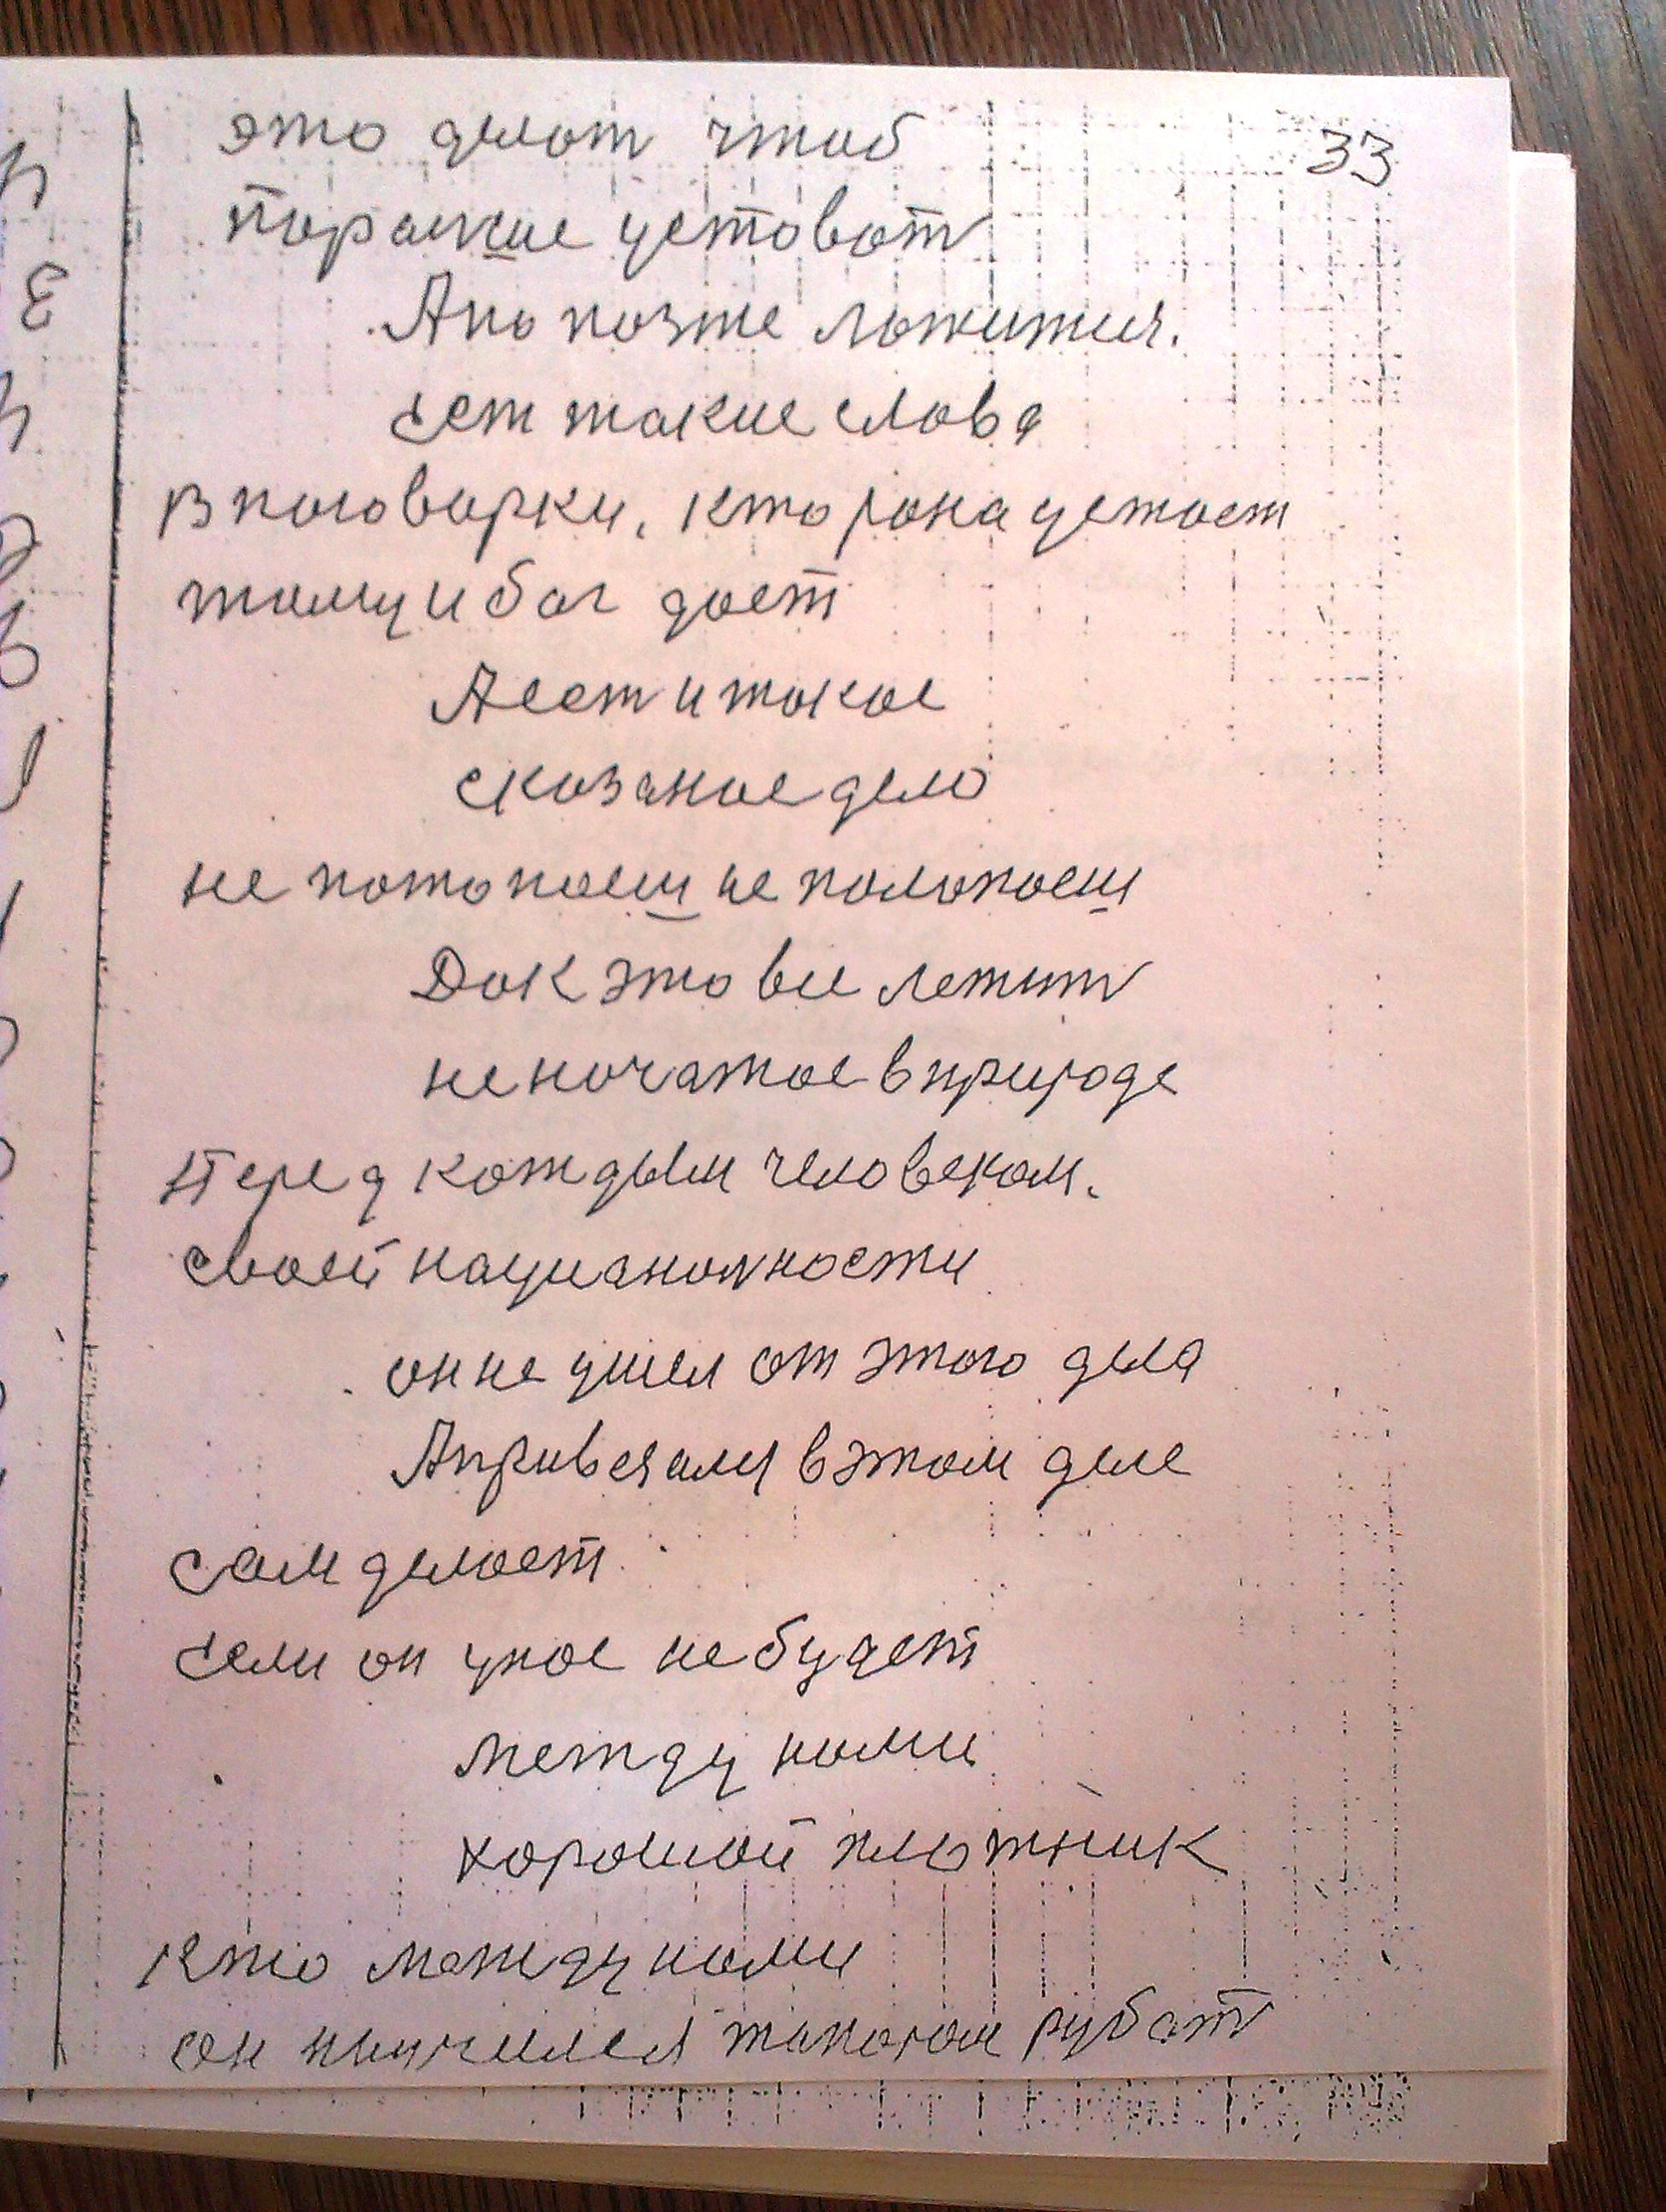 33
это делат чтоб
пораниее устават
А по позже ложится.
Сет такие слова
В поговорки, кто рона устает
тому и бог дает
А ест и такое
сказаное дело
не потопаеш не полопаеш
Док это все лежит
не початое в природе
Перед каждым человеком.
своей национолности
он не ушел от этого дела
А прився али в этом деле
сам делает
Сели он умое не будет
между нами
хорошой плотник
Кто между нами
он научился топором рубат